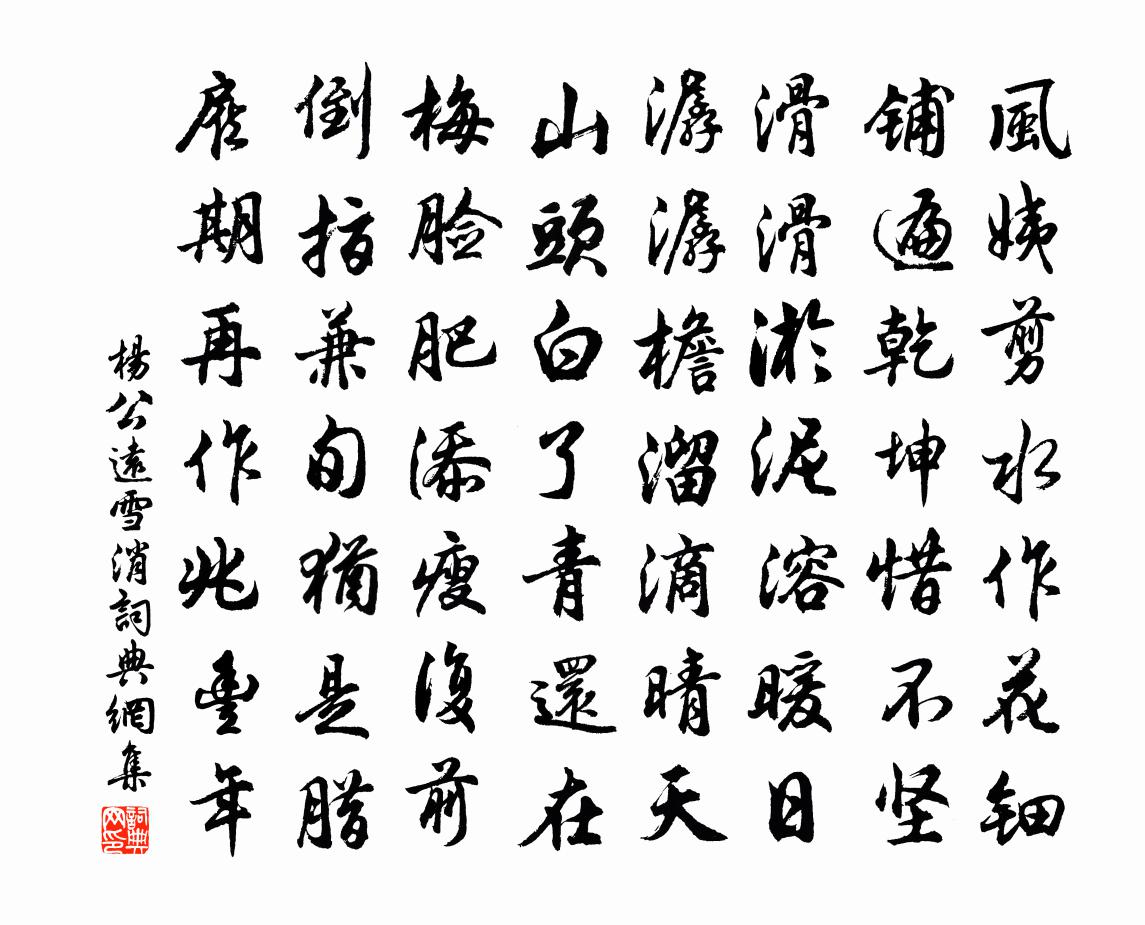 風姨剪水作花钿
铺遍乾坤惜不坚
滑滑淤泥溶暖日
潺潺檐溜滴晴天
山頭白了青還在
梅脸肥添瘦復前
倒指兼旬猶是腊
庶期再作兆豊年
楊公遠雪消詞典網集
詞典网印